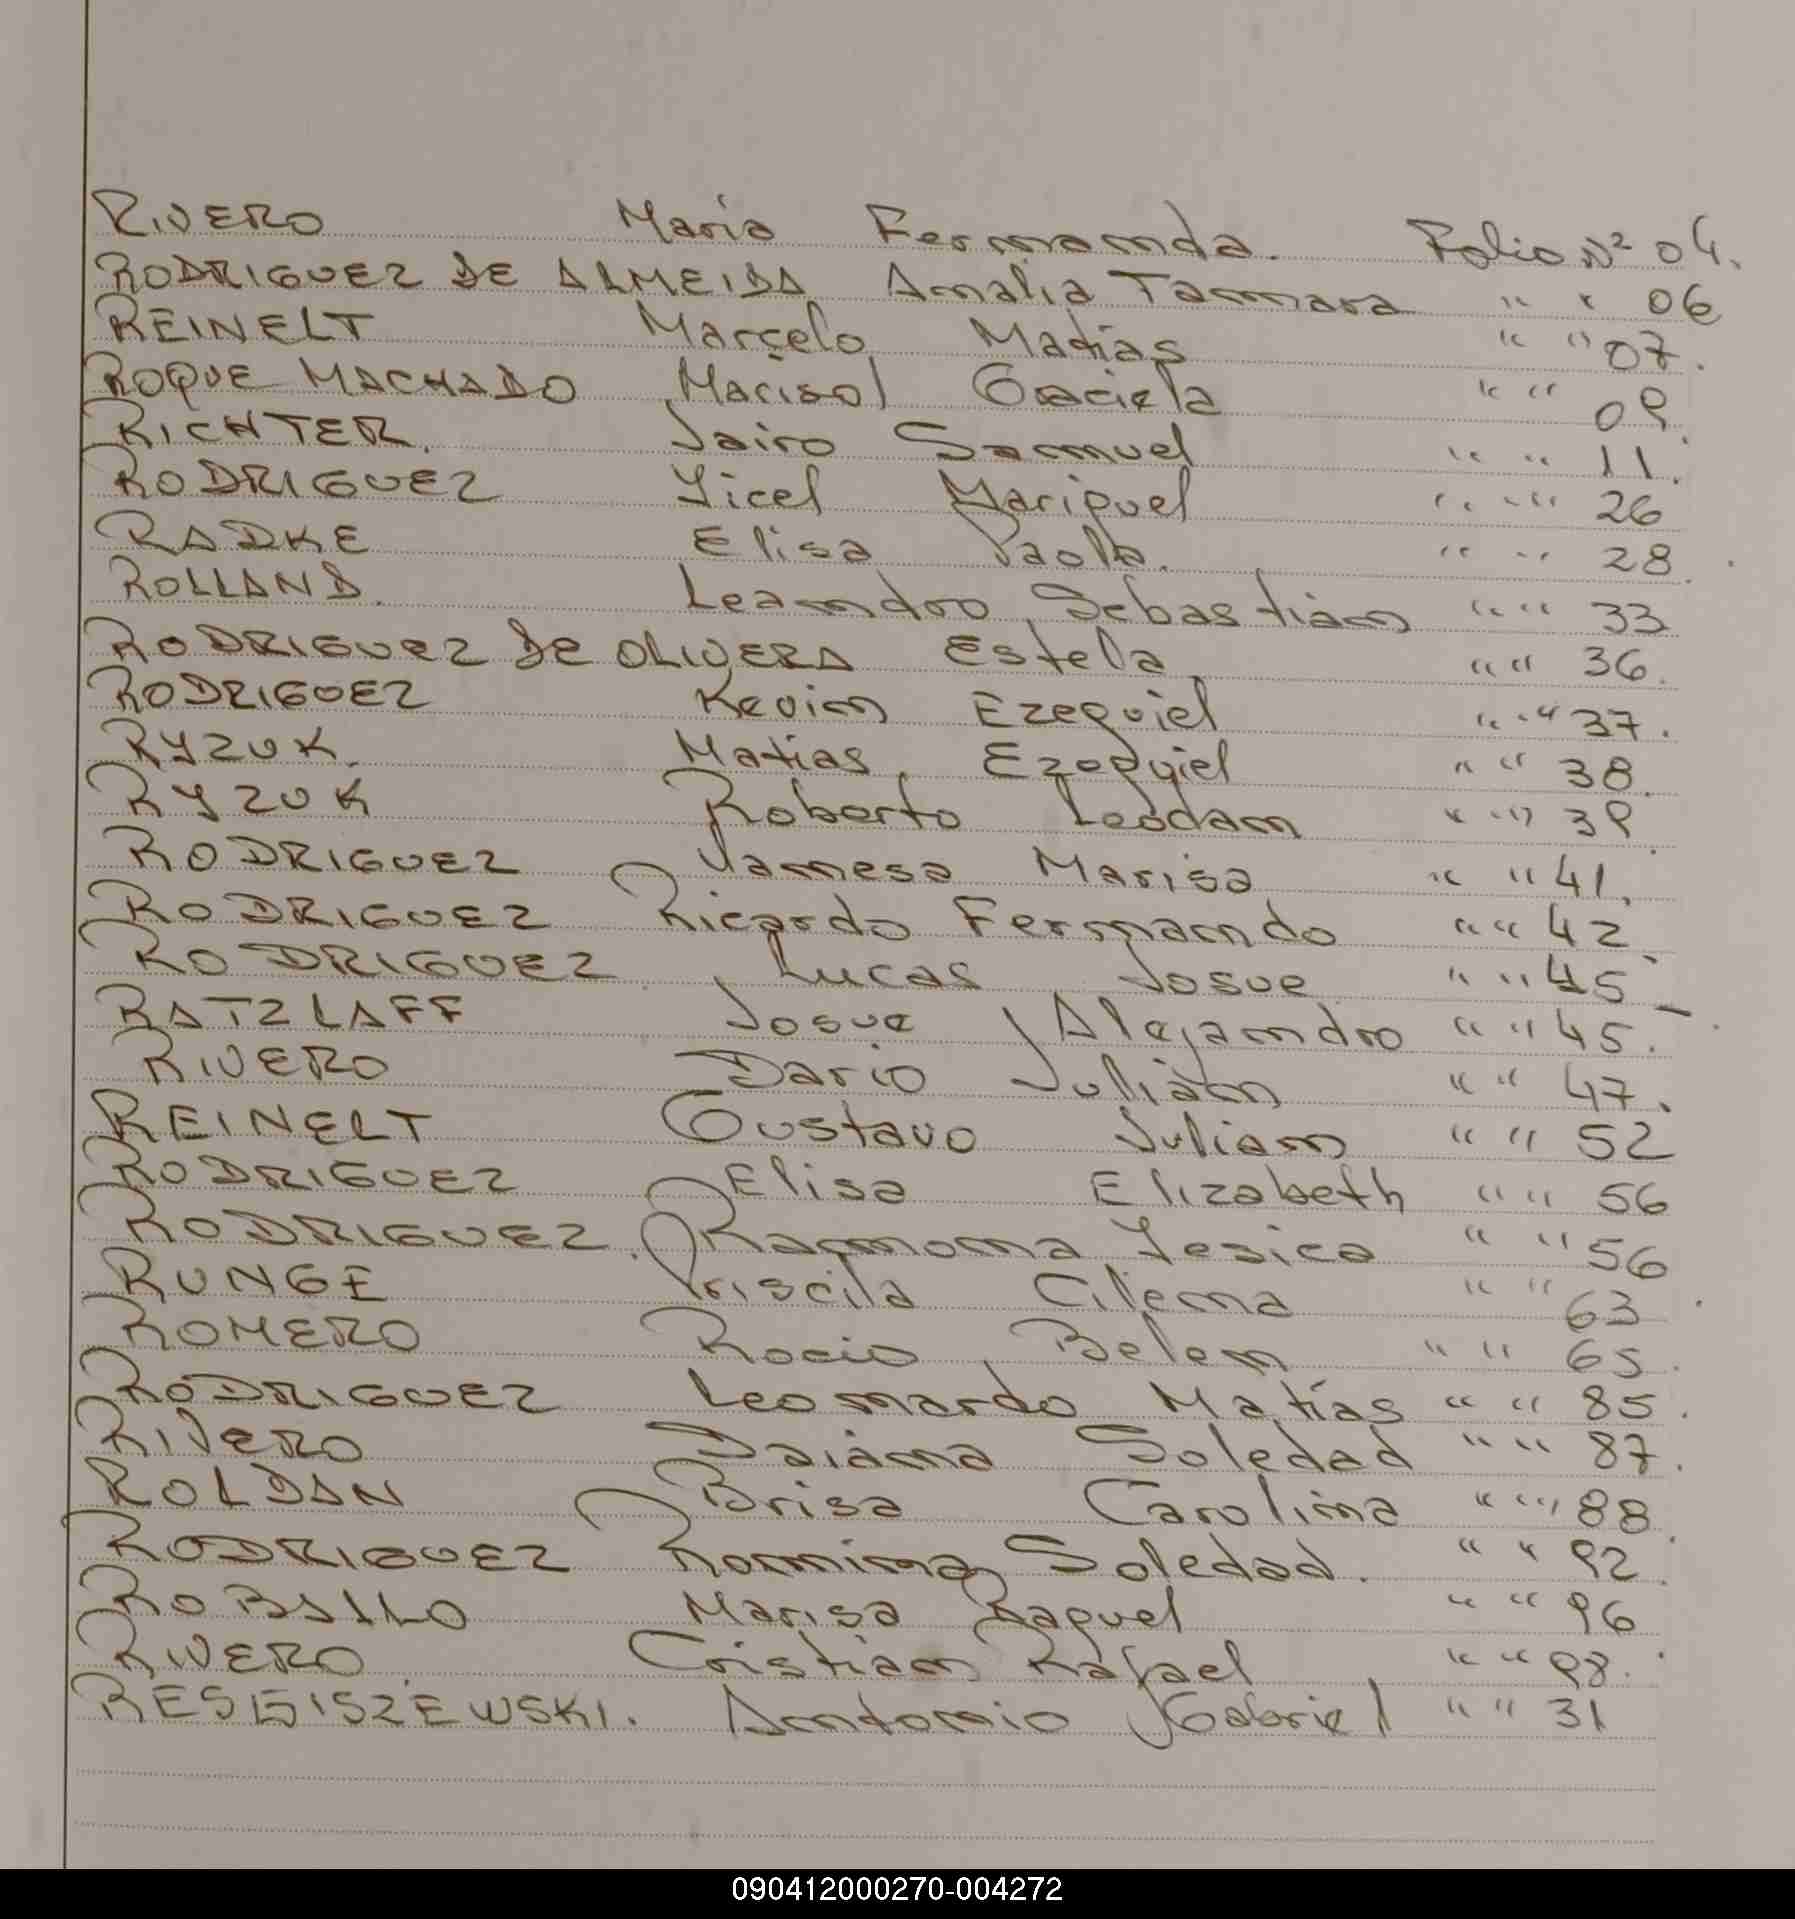 RIVERO Maria Fernanda. Folio Nº 04.
RODRIGUEZ DE ALMEIDA Analia Tamara " " 06
REINELT Marcelo Matias " " 07.
ROQUE MACHADO Marisol Graciela " " 09.
RICHTER. Jairo Samuel " " 11.
RODRIGUEZ Yicel Mariquel " " 26
RADKE Elisa Paola. " " 28.
ROLLAND. Leandro Sebastián " " 33
RODRIGUEZ DE OLIVERA Estela " " 36.
RODRIGUEZ Kevin Ezequiel " " 37.
RYZUK. Matias Ezequiel " " 38.
RYZUK Roberto Leodan " " 39.
RODRIGUEZ Vanesa Marisa " " 41.
RODRIGUEZ Ricardo Fernando " " 42
RODRIGUEZ. Lucas Josue " " 45
RATZLAFF Josue Alejandro " " 45.
RIVERO Dario Julián " " 47.
REINELT Gustavo Julian " " 52
RODRIGUEZ Elisa Elizabeth " " 56
RODRIGUEZ. Ramona Yesica " " 56
RUNGE Priscila Cilena " " 63
ROMERO Rocio Belen " " 65.
RODRIGUEZ Leonardo Matías " " 85.
RIVERO Daiana Soledad " " 87.
ROLDAN Brisa Carolina " " 88
RODRIGUEZ Romina Soledad. " " 92.
ROBALLO Marisa Raquel " " 96
RIVERO Cristian Rafael " " 98.
Antonio Gabriel " " 31
090412000270-004272